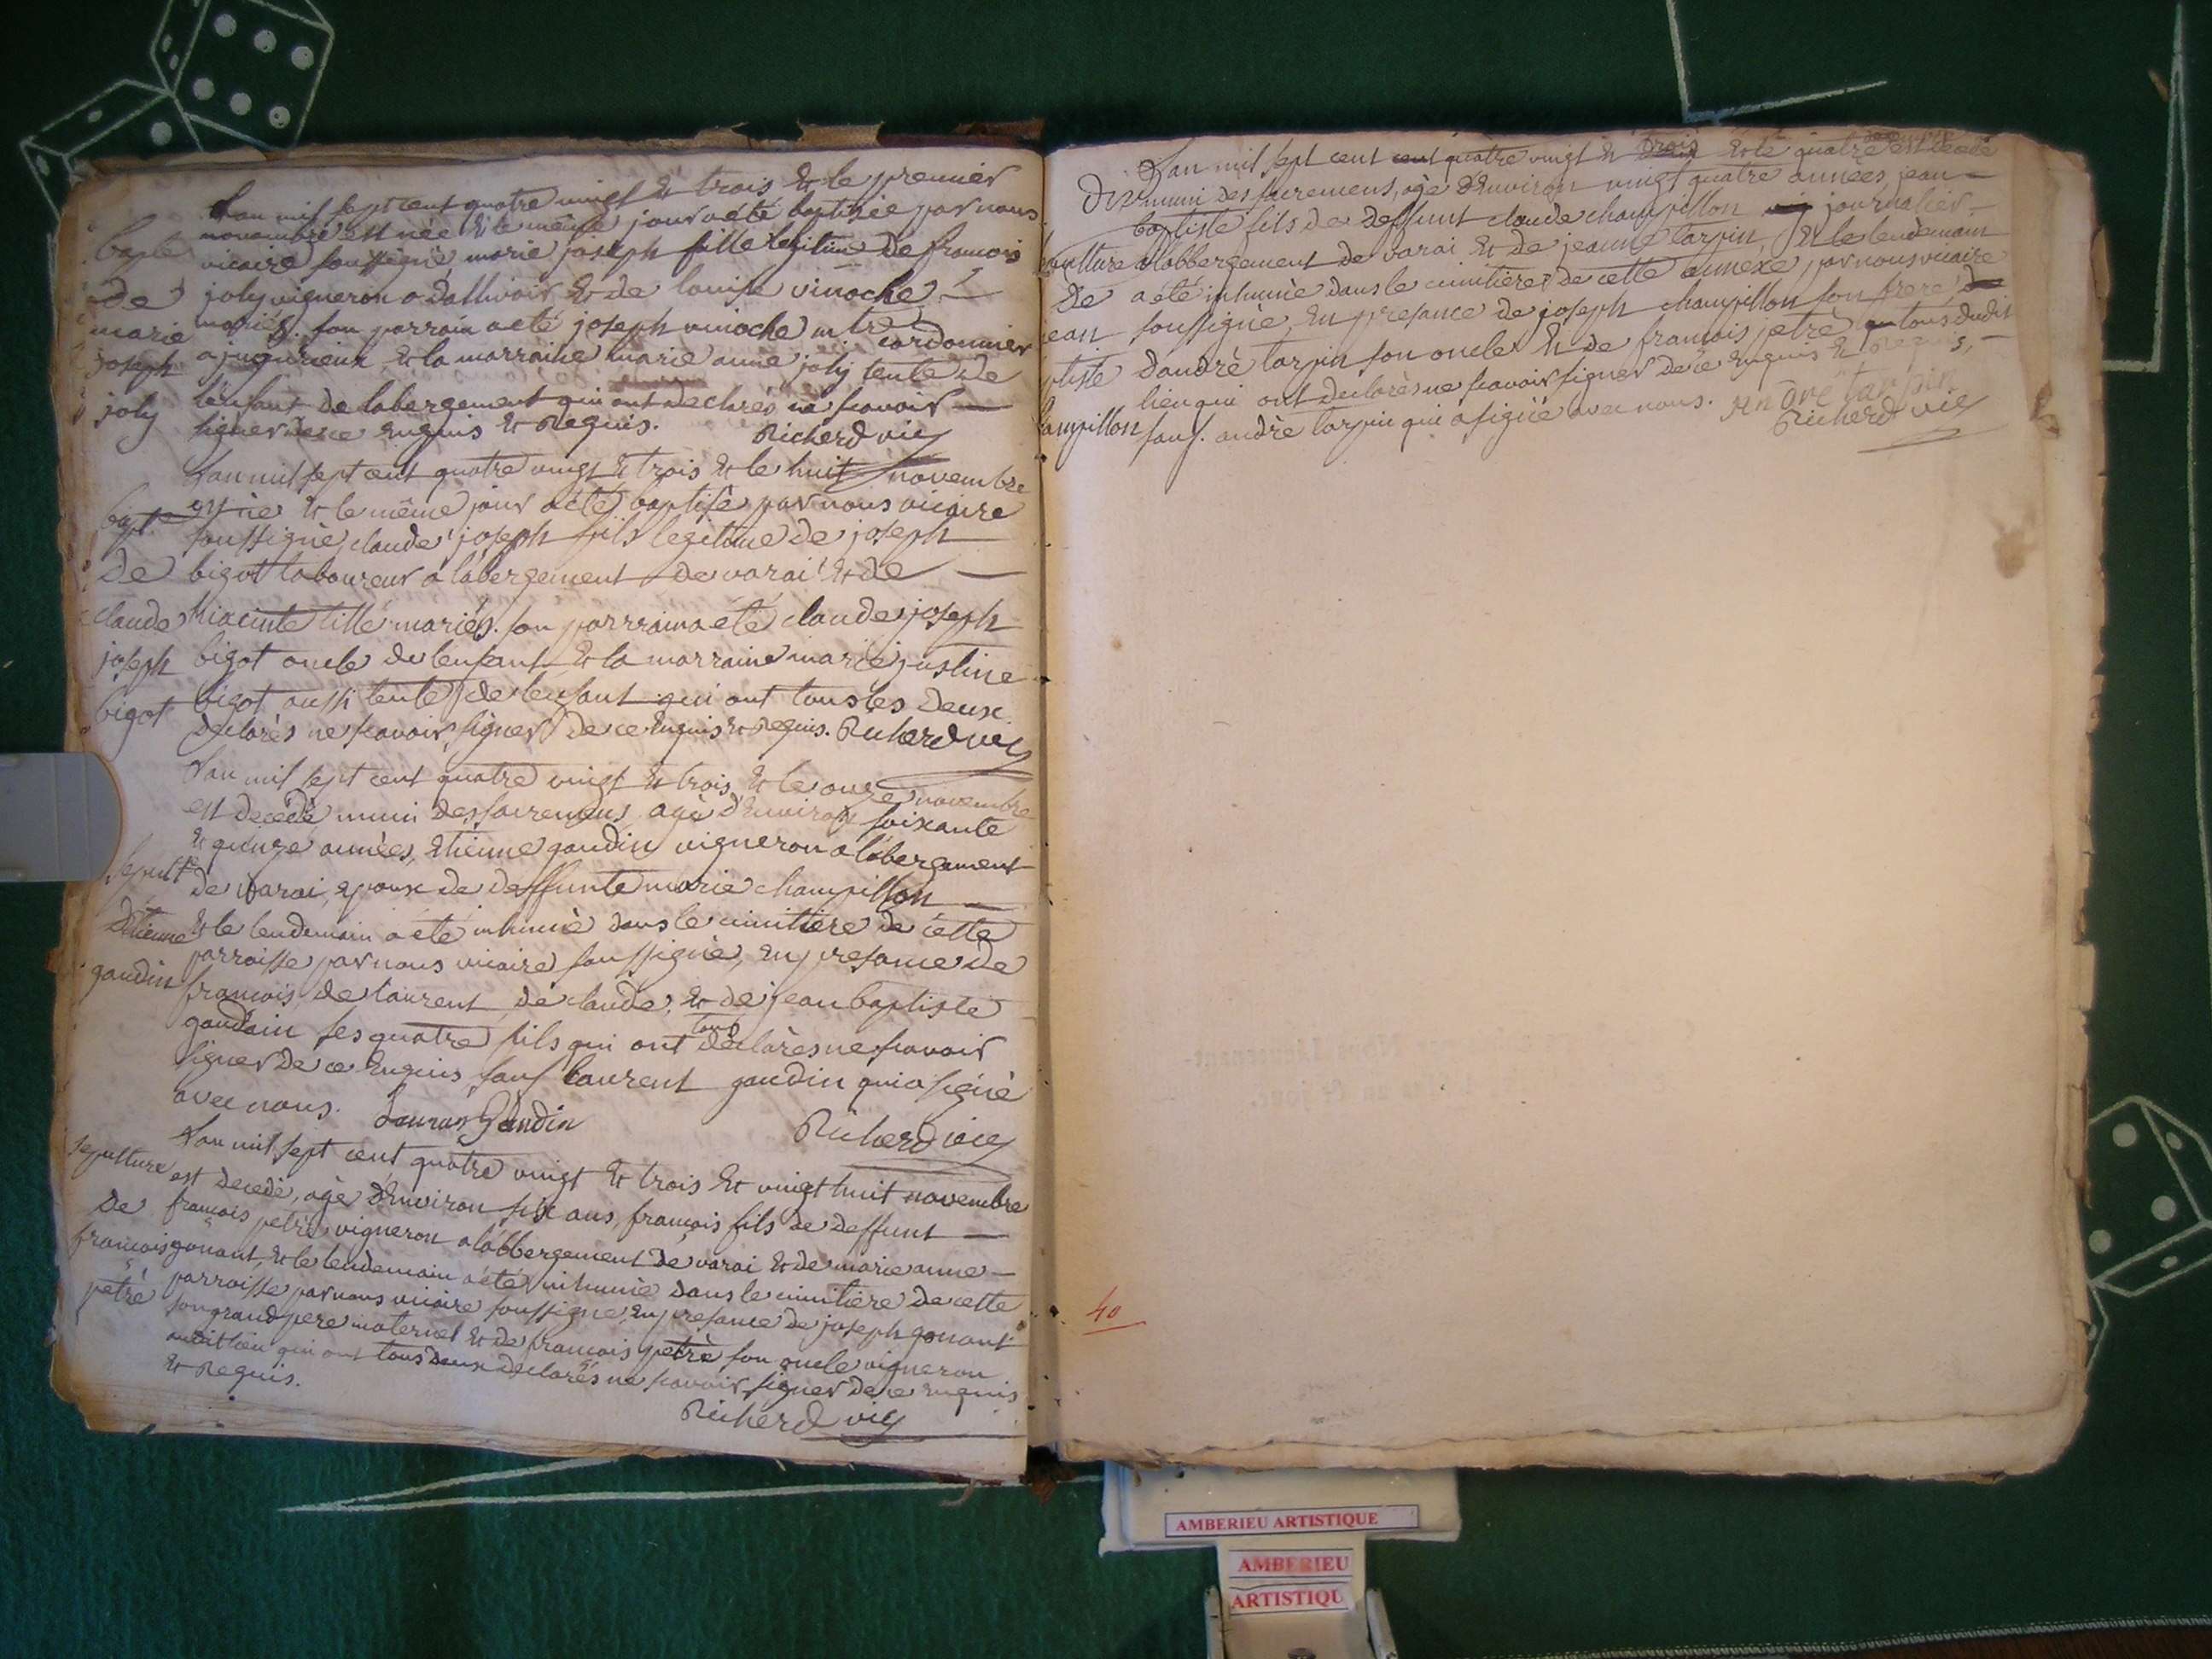 L'an mil sept cent quatre vingt & trois & le premier
novembre est née & le même jour a été baptisée par nous
vicaire soussigné, marie joseph fille legitime de francois
joly vigneron & de louise vinoche
mariés. son parrain a eté joseph vinoche cordonnier
a jujurieux, & la marraine marie anne joly tente de
l'enfant de labergement qui ont declarés ne scavoir
signer de ce enquis & Requis. Richerd vic
bapte
de
marie
joseph
joly
L'an mil sept cent quatre vingt & trois & le huit novembre
est né & le même jour a eté baptisé par nous vicaire
soussigné, claude joseph fils legitime de joseph
bigot laboureur a labergement de varai & de
hiacinte tillé mariés. son parrain a eté claude joseph
bigot oncle de lenfant & la marraine marie justine
bigot aussi tente de lenfant qui ont tous les deux
declarés ne scavoir signer de ce enquis & Requis. Richerd vic
bapt.
de
claude
joseph
bigot
L'an mil sept cent quatre vingt & trois & le onze novembre
est decedé muni des sacremens, agé d'environ soixante
& quinze années, etienne gaudin vigneron a labergement
de varai, epoux de deffunte marie champillon
& le lendemain a eté inhumé dans le cimitiere de cette
parroisse par nous vicaire soussigné, en presance de
francois, de laurent, de claude, & de jean baptiste
gaudain ses quatre fils qui ont tous declarés ne scavoir
signer de ce enquis, sauf laurent gaudin qui a signé
avec nous. Lauran Gandin Richerd vic
sepult
d'etienne
gaudin
L'an mil sept cent quatre vingt & trois & vingt huit novembre
est decedé, agé d'environ six ans, françois fils de deffunt
francois petré vigneron a labbergement de varai & de marie anne
gonant, & le lendemain a eté inhumé dans le cimitiere de cette
parroisse par nous vicaire soussigné, en presance de joseph gonant
son grand pere maternel & de francois petré son oncle vigneron
audit lieu qui ont tous deux declarés ne scavoir signer de ce enquis
& Requis.
Richerd vic
sepulture
de
francois
petré
L'an mil sept cent cent quatre vingt & trois & le quatre decembre est decedé
muni des sacremens, agé d'environ vingt quatre années, jean
baptiste fils de deffunt claude champillon journalier
a labbergement de varai & de jeanne tarpin, & le lendemain
a eté inhumé dans le cimitiere de cette annexe par nous vicaire
soussigné, en presance de joseph champillon son frere,
d'andré tarpin son oncle & de francois petré tous dudit
lieu qui ont declarés ne scavoir signer de ce enquis & Requis,
sauf. andré tarpin qui a signé avec nous. andré tarpin
Richerd vic
pulture
de
jean
ptiste
ampillon
40
AMBERIEU ARTISTIQUE
AMBERIEU
ARTISTIQU